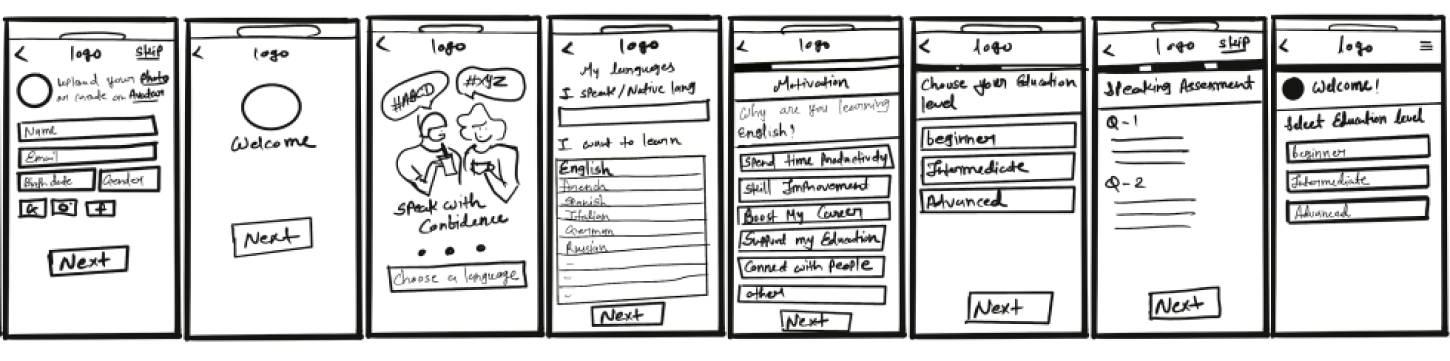 logo skip
upload your photo
or create an Avatar
Name
Email
Birth date Gender
G f
Next
logo
Welcome
Next
logo
#ABCD #XYZ
Speak with
Confidence
Choose a language
logo
My languages
I speak/Native lang
I want to learn
English
French
Spanish
Italian
German
Russian
-
-
-
Next
logo
Motivation
Why are you learning
English?
Spend time Productively
Skill Improvement
Boost My Career
Support my Education
Connect with People
other
Next
logo
Choose your Education
level
beginner
Intermediate
Advanced
Next
logo skip
Speaking Assessment
Q-1
Q-2
Next
logo
Welcome!
Select Education level
beginner
Intermediate
Advanced